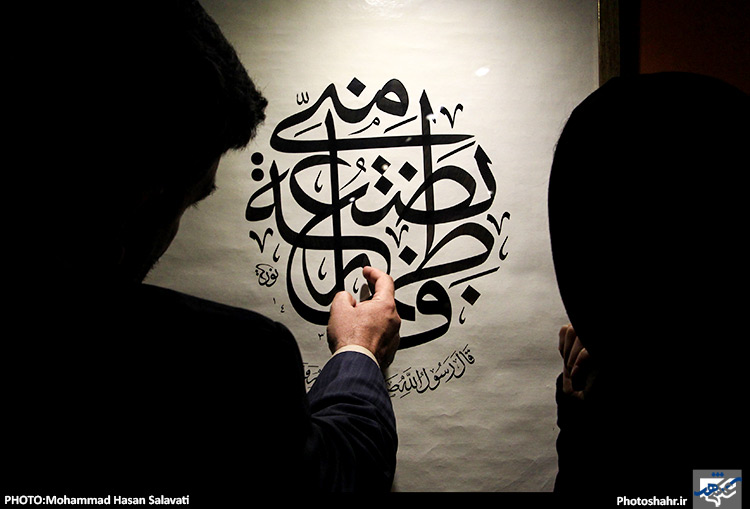 فاطمة بضعة منّي
قَالَ رَسُولُ اللّٰه
PHOTO:Mohammad Hasan Salavati
Photoshahr.ir